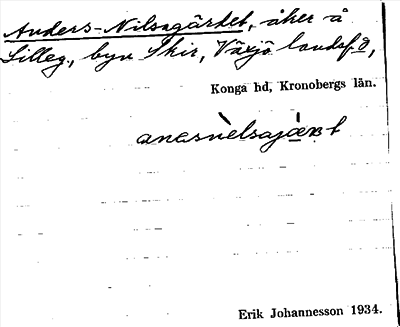 Anders-Nilsagärdet, åker å
Lilleg., byn Skir, Växjö landsfö,
Konga hd, Kronobergs län.
Erik Johannesson 1934.